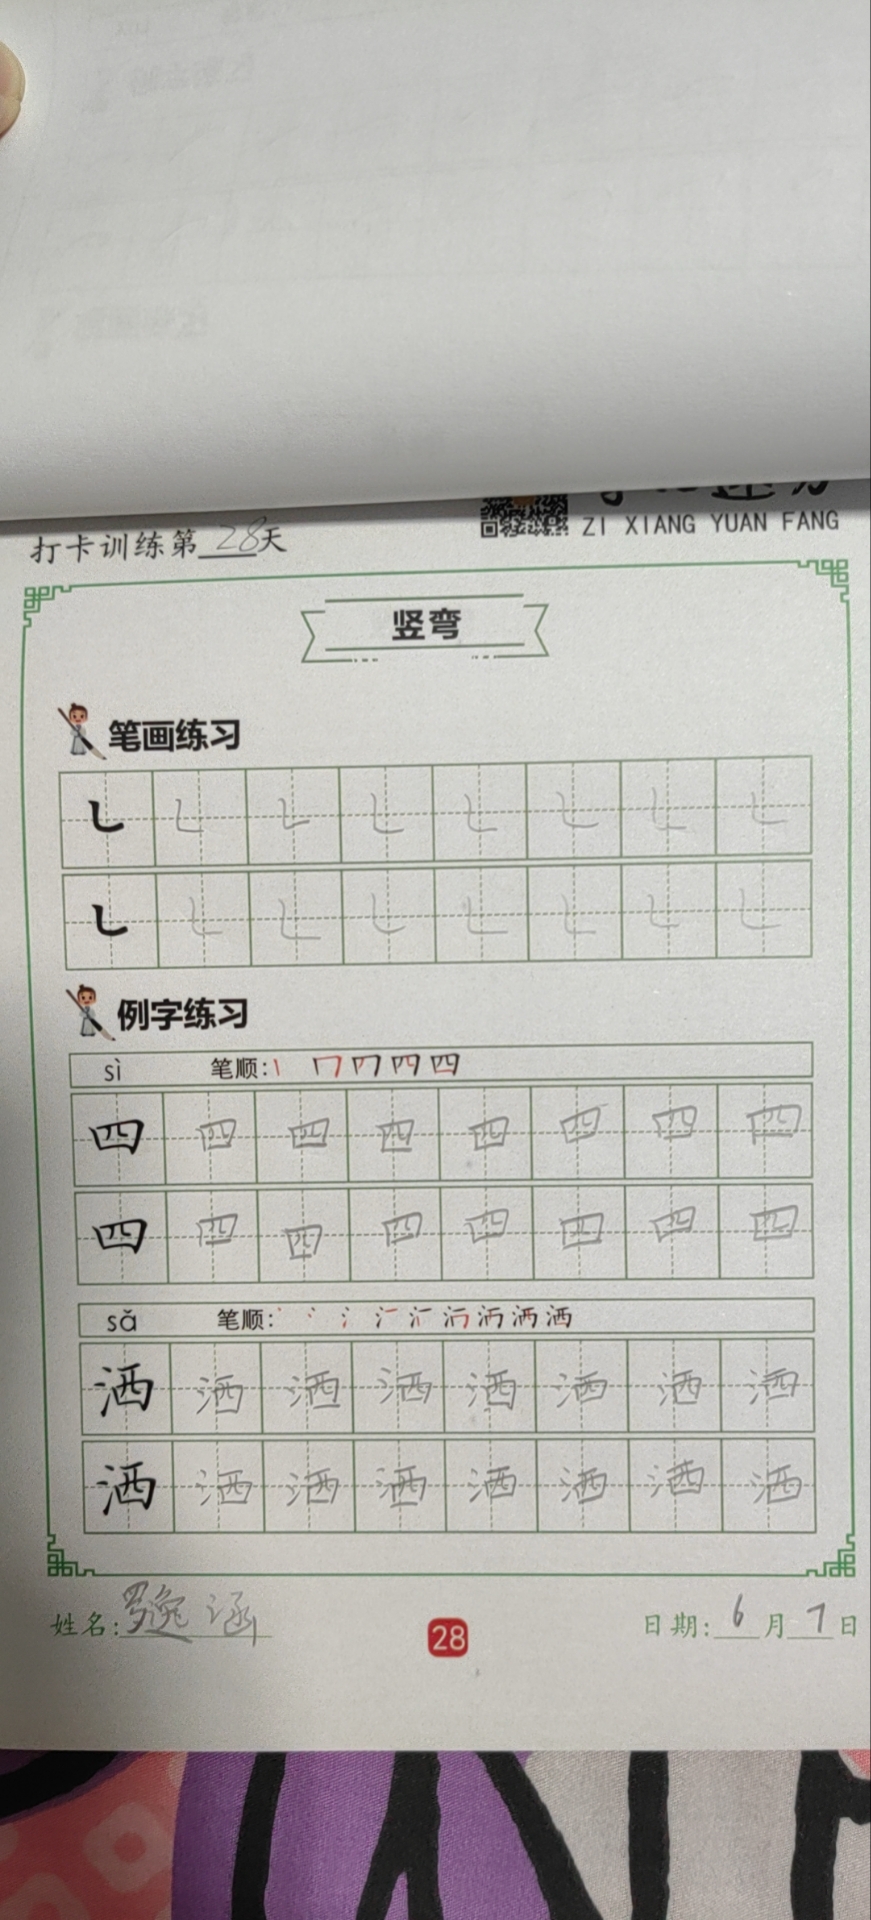 打卡训练第28天
ZI XIANG YUAN FANG
竖弯
笔画练习
㇄ ㇄ ㇄ ㇄ ㇄ ㇄ ㇄ ㇄
㇄ ㇄ ㇄ ㇄ ㇄ ㇄ ㇄ ㇄
例字练习
sì 笔顺:
四 四 四 四 四 四 四 四
四 四 四 四 四 四 四 四
sǎ 笔顺:
洒 洒 洒 洒 洒 洒 洒 洒
洒 洒 洒 洒 洒 洒 洒 洒
姓名:罗逸涵 28 日期:6月7日